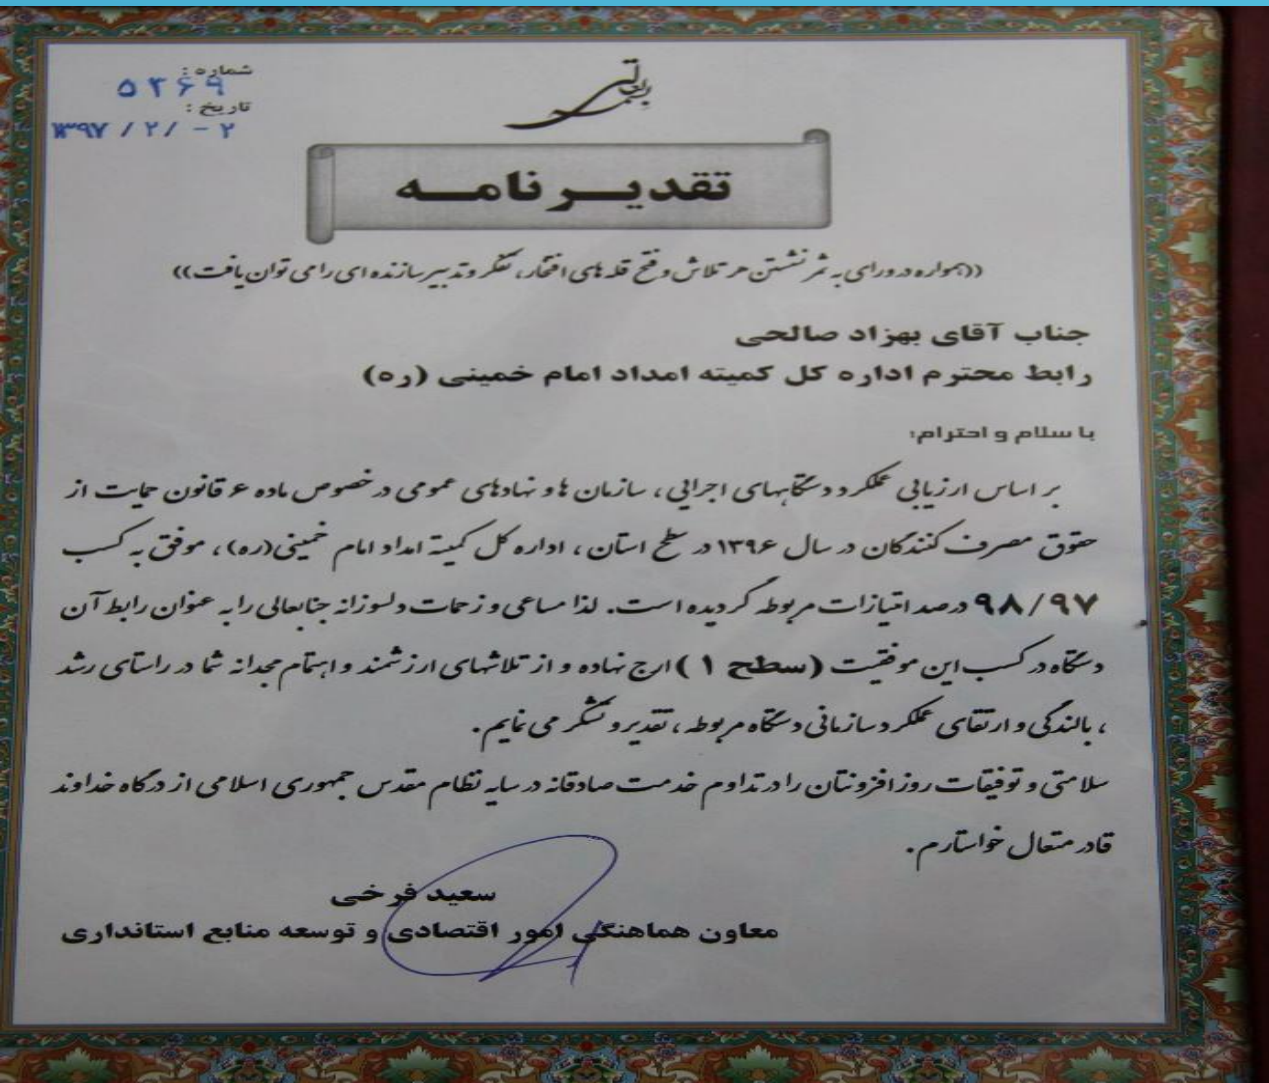 بسمه تعالی
شماره :
۵۴۶۹
تاریخ :
۱۳۹۷ / ۲ / - ۲
تقدیرنامه
((همواره در ورای به ثمر نشستن هر تلاش و فتح قله های افتخار، تفکر و تدبیر سازنده ای را می توان یافت))
جناب آقای بهزاد صالحی
رابط محترم اداره کل کمیته امداد امام خمینی (ره)
با سلام و احترام؛
بر اساس ارزیابی عملکرد دستگاههای اجرایی ، سازمان ها و نهادهای عمومی در خصوص ماده ۶ قانون حمایت از
حقوق مصرف کنندگان در سال ۱۳۹۶ در سطح استان ، اداره کل کمیته امداد امام خمینی(ره) ، موفق به کسب
۹۸/۹۷ درصد امتیازات مربوطه گردیده است. لذا مساعی و زحمات دلسوزانه جنابعالی را به عنوان رابط آن
دستگاه در کسب این موفقیت (سطح ۱ ) ارج نهاده و از تلاشهای ارزشمند و اهتمام مجدانه شما در راستای رشد
، بالندگی و ارتقای عملکرد سازمانی دستگاه مربوطه ، تقدیر و تشکر می نمایم.
سلامتی و توفیقات روز افزونتان را در تداوم خدمت صادقانه در سایه نظام مقدس جمهوری اسلامی از درگاه خداوند
قادر متعال خواستارم.
سعید فرخی
معاون هماهنگی امور اقتصادی و توسعه منابع استانداری